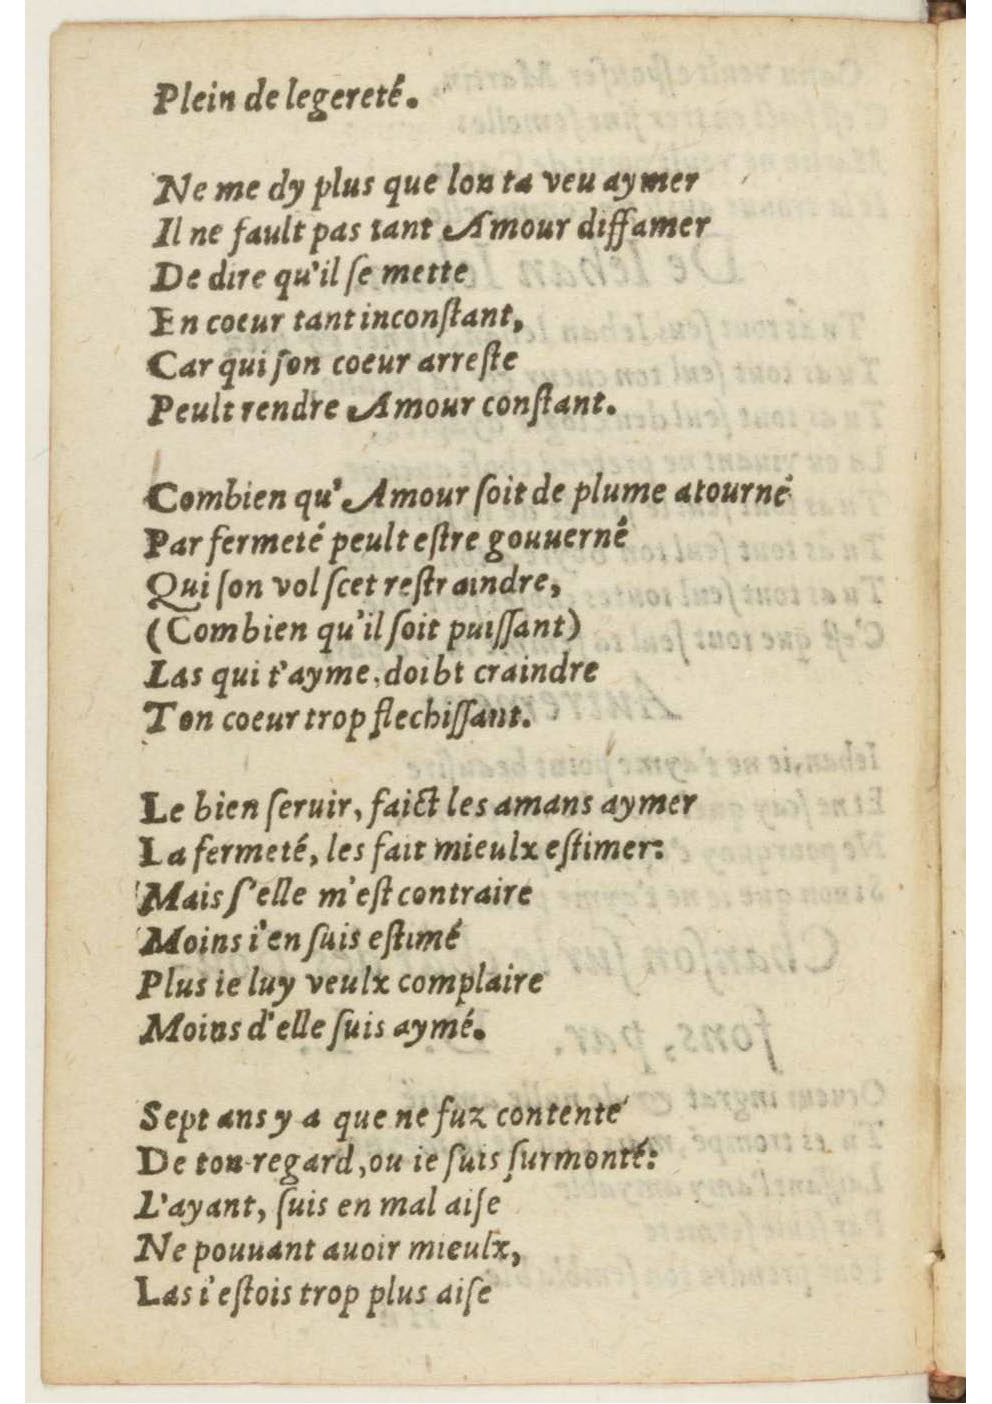 Plein de legereté.
Ne me dy plus que lon ta veu aymer
Il ne fault pas tant Amour diffamer
De dire qu'il ſe mette
En coeur tant inconſtant,
Car qui ſon coeur arreſte
Peult rendre Amour conſtant.
Combien qu'Amour ſoit de plume atourné
Par fermeté peult eſtre gouuerné
Qui ſon vol ſcet reſtraindre,
(Combien qu'il ſoit puiſſant)
Las qui t'ayme, doibt craindre
Ton coeur trop flechiſſant.
Le bien ſeruir, faict les amans aymer
La fermeté, les fait mieulx eſtimer:
Mais ſ'elle m'eſt contraire
Moins i'en ſuis eſtimé
Plus ie luy veulx complaire
Moins d'elle ſuis aymé.
Sept ans y a que ne fuz contenté
De ton regard, ou ie ſuis ſurmonté:
L'ayant, ſuis en mal aiſe
Ne pouuant auoir mieulx,
Las i'eſtois trop plus aiſe